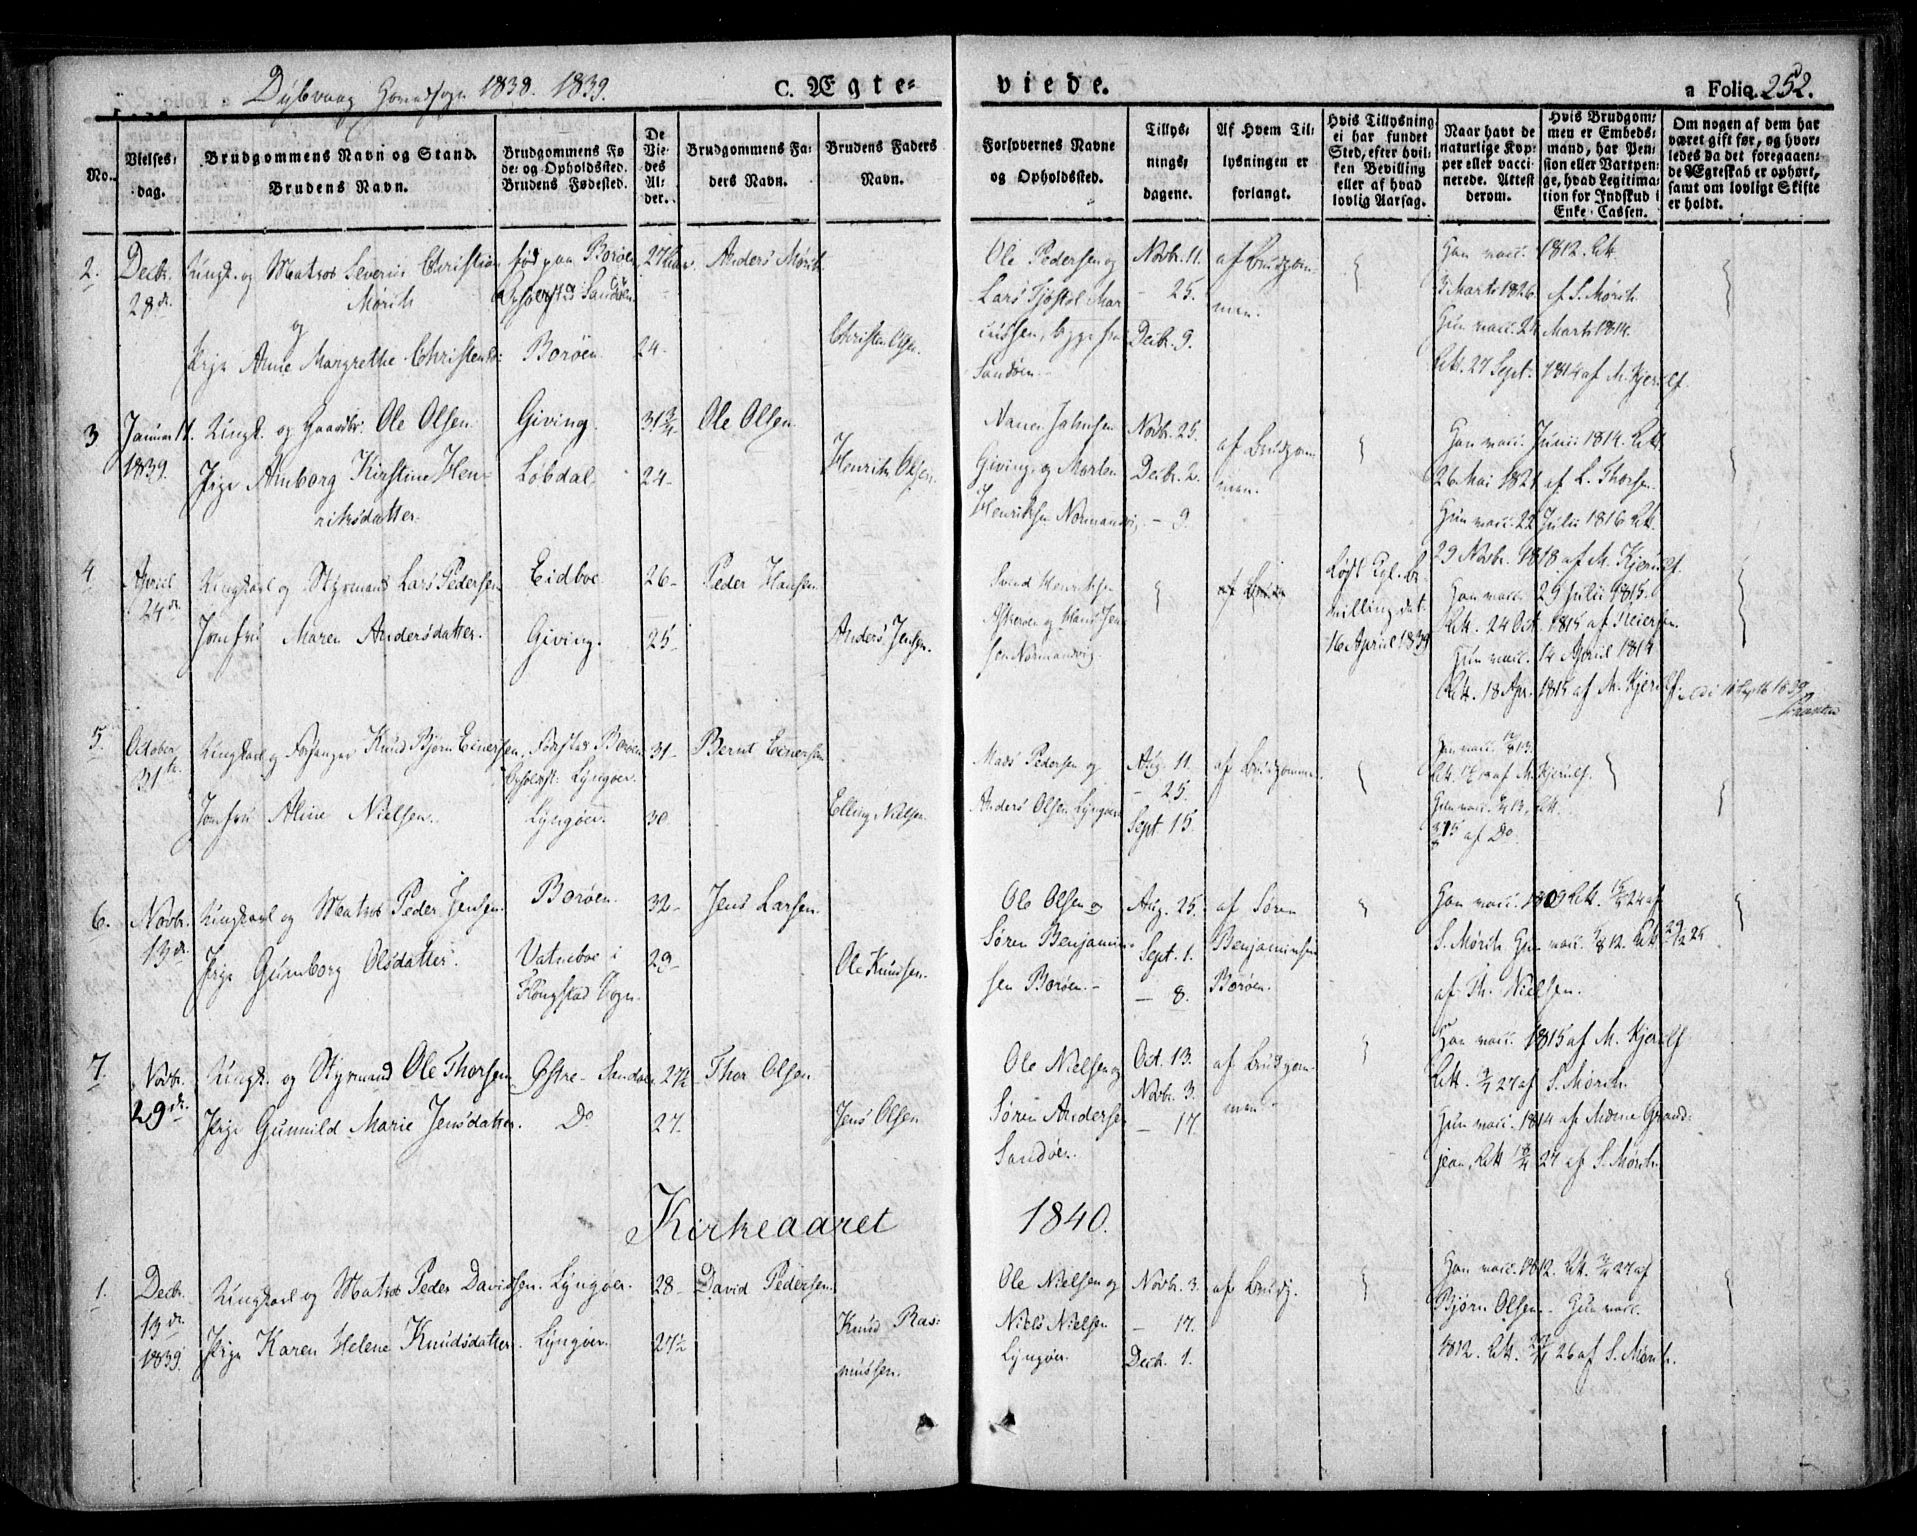 Dybvaag Hovedsogn 1838. 1839.
C. Ægte-
viede.
a Folio 252.
No.
Vielses-
dag.
Brudgommens Navn og Stand.
Brudens Navn.
Brudgommens Fø
de- og Opholdssted.
Brudens Fødested.
De
Vie-
des
Al-
der.
Brudgommens Fa-
ders Navn.
Brudens Faders
Navn.
Forlovernes Navne
og Opholdssted.
Tillys-
nings-
dagene.
Af Hvem Til-
lysningen er
forlangt.
Hvis Tillysning
ei har fundet
Sted, efter hvil-
ken Bevilling
eller af hvad
lovlig Aarsag.
Naar havt de
naturlige Kop-
per eller vacci-
nerede. Attest
derom.
Hvis Brudgom-
men er Embeds-
mand, har Pen-
sion eller Vartpen-
ge, hvad Legitima-
tion for Indskud i
Enke-Cassen.
Om nogen af dem har
været gift før, og hvor-
ledes da det foregaaen-
de Ægteskab er ophørt,
samt om lovligt Skifte
er holdt.
2.
Decbr.
28de
Ungk. og Matros Severin Christian
Mørch
og
Pige Anne Margrethe Christensd:
født paa Borøen
Opholdsted Sandøen
Borøen.
24.
Anders Mørch
Christen Olsen.
Ole Pedersen og
Lars Tjøstol Mar
cussen, begge fra
Sandøen.
Novbr. 11.
- 25.
Decbr. 9.
af Brudgom-
men.
Han vacc. 1812. Att.
3 Marts 1826 af S. Mørch.
Hun vacc. 24 Marts 1814.
Att. 27 Sept. 1814 af M. Kjerulf.
3
Januar 11.
1839.
Ungk. og Gaardbr. Ole Olsen.
Pige Anborg Kirstine Hen-
riksdatter.
Giving.
Løbdal.
31 3/4
24-
Ole Olsen.
Henrik Olsen.
Giving, og Morten
Henriksen Normandvig
Novbr. 25.
Decbr. 2.
- 9.
af Brudgom-
men.
Han vacc. Junii 1814. Att.
26 Mai 1821 af L. Thorsen.
Hun vacc. 22 Julii 1816. Att.
29 Novbr. 1818 af M. Kjerulf.
4
April
24de
Ungkarl og Styrmand Lars Pedersen
Jomfru Maren Andersdatter.
Eidboe.
Giving.
26-
25-
Peder Hansen
Anders Jensen.
Svend Henriksen
Askerøen og Hans Jen
sen Normandvig.
Løst Kgl. Be
villing dat.
16 April 1839
Han vacc. 29 Julii 1815.
Att. 24 Oct. 1815 af Reiersen.
Hun vacc. 14 April 1815
Att. 18 Apr. 1815 af M. Kjerulf.
5.
October
31te
Ungkarl og Knud Bjørn Einersen.
Jomfru Aline Nielsen.
Borøen
Opholdst: Lyngøer.
Lyngøer.
31-
30.
Bernt Einersen
Elling Nielsen.
Mads Pedersen og
Anders Olsen Lyngøer
Aug. 11.
- 25.
Sept. 15.
af Brudgommen.
Han vacc.
af M. Kjerulf.
Hun vacc.
af Do
6.
Novbr.
13de
Ungkarl og Matros Peder Jensen.
Pige Gunborg Olsdatter.
Borøen.
Vatneboe i
Flougstad Sogn.
32-
29-
Jens Larsen.
Ole Knudsen.
Ole Olsen og
Søren Benjamin-
sen Borøen.
Aug. 25.
Sept. 1.
- 8.
af Søren
Benjaminsen
Borøen.
Han vacc. 1809 Att. 24 af
S. Mørch. Hun vacc. 1812. Att.
af Th. Nielsen.
7.
Novbr.
29de.
Ungk. og Styrmand Ole Thorsen
Pige Gunnild Marie Jensdatter.
Østre-Sandøe.
Do
27½
27.
Thor Olsen
Jens Olsen
Ole Nielsen og
Søren Andersen
Sandøen.
Oct. 13.
Novbr. 3.
- 17.
af Brudgom-
men.
Han vacc. 1815 af M. Kjerulf
Att. 27 af S. Mørch.
Hun vacc. 1814 af Mdme Grand-
jean, Att 27 af S. Mørch.
Kirkeaaret 1840.
1.
Decbr.
13de
1839.
Ungkarl og Matros Peder Davidsen.
Pige Karen Helene Knudsdatter
Lyngøer.
Lyngøer.
28-
27½
David Pedersen.
Knud Ras-
mussen.
Ole Nielsen og
Niels Nielsen
Lyngøer.
Novbr. 3.
- 17.
Decb. 1.
af Brudg.
Han vacc. 1812. Att. 27 af
Bjørn Olsen. Hun vacc.
1812. Att. 26 af S. Mørch.